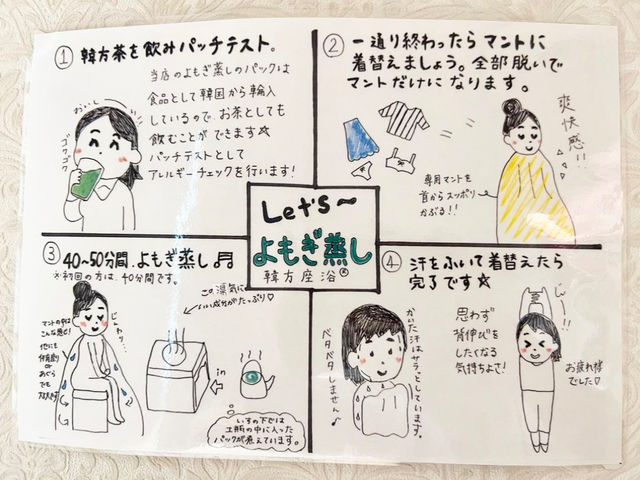 ① 韓方茶を飲みパッチテスト。
当店のよもぎ蒸しのパックは
食品として韓国から輸入
しているので、お茶としても
飲むことができます☆
パッチテストとして
アレルギーチェックを行います!
おいしい
ゴクゴク
② 一通り終わったらマントに
着替えましょう。全部脱いで
マントだけになります。
爽快感!!
専用マントを
首からスッポリ
かぶる!!
Let's~
よもぎ蒸し
韓方座浴®
③ 40~50分間、よもぎ蒸し♬
※初回の方は、40分間です。
マントの中は
こんな感じ!
他にも
あぐら
でも
じんわり…
この湯気に
いい成分がたっぷり♡
in
いすの下では
土瓶の中に入った
パックが煮えています。
④ 汗をふいて着替えたら
完了です☆
かいた汗はサラっとしています。
ベタベタしません♪
思わず
背伸びを
したくなる
気持ちよさ!
お疲れ様
でした♡